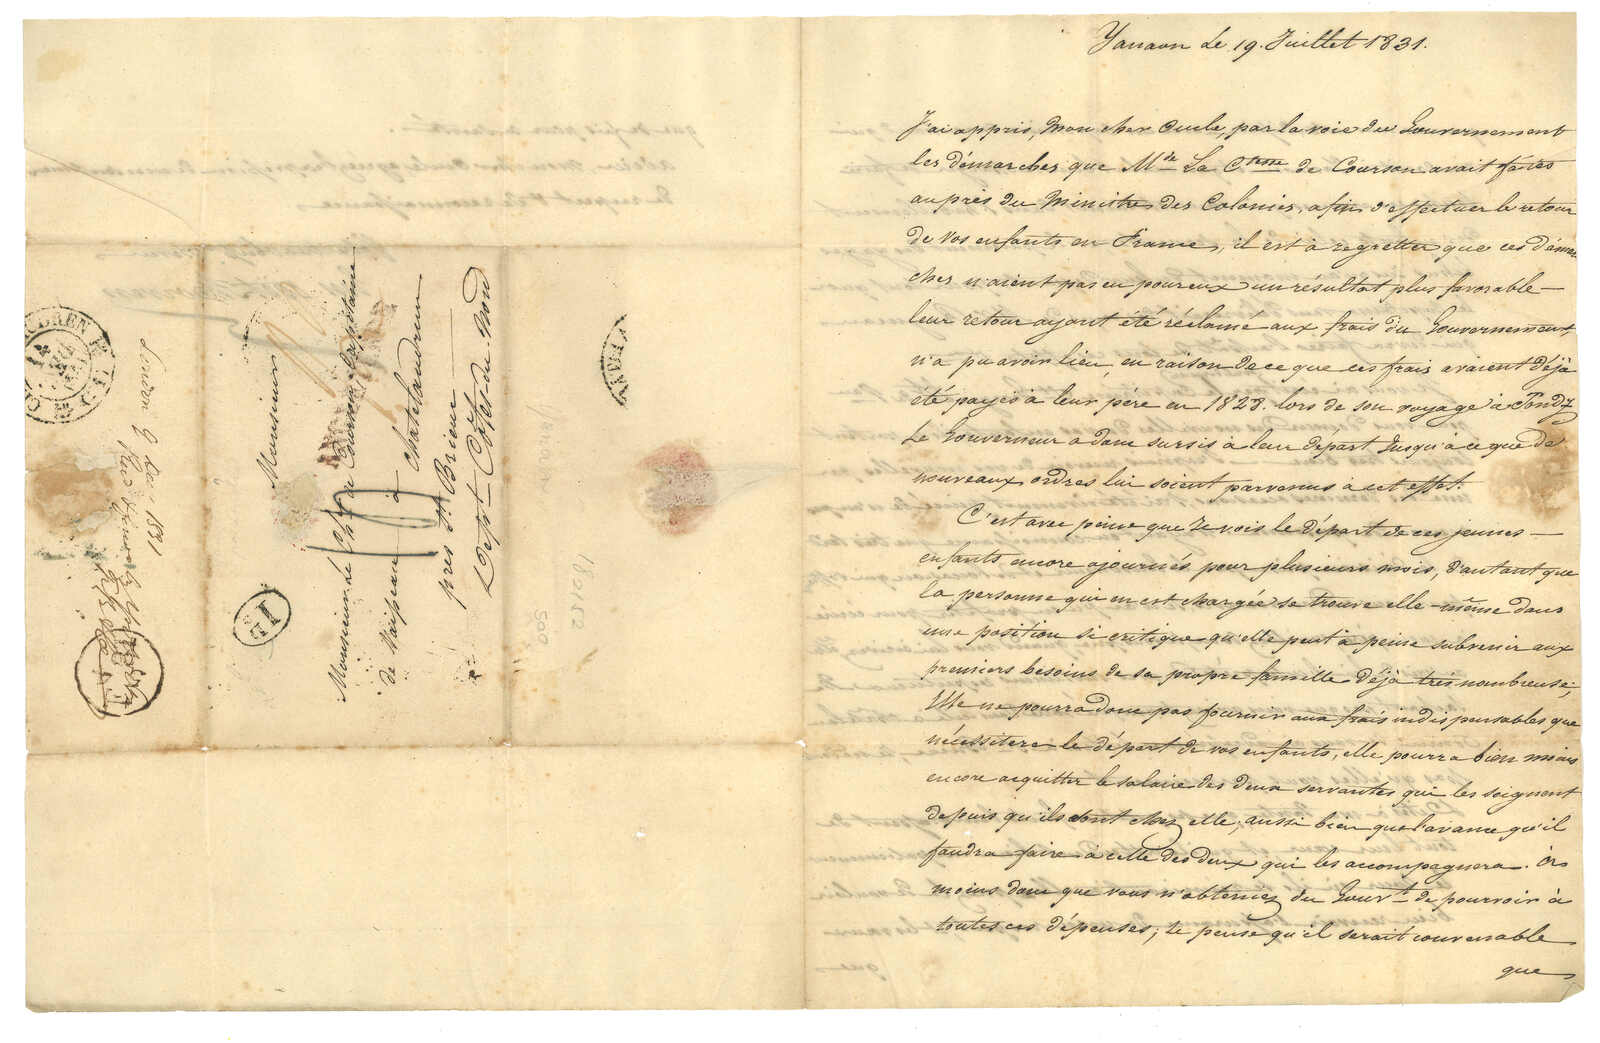 Yanaon le 19. Juillet 1831.
J'ai appris, mon cher Oncle, par la voie du Gouvernement
les démarches que M.de La C.tesse de Courson avait faites
auprès du Ministre des Colonies, afin d'effectuer le retour
de vos enfants en France, il est à regretter que ces démar
ches n'aient pas eu pour eux un résultat plus favorable —
leur retour ayant été réclamé aux frais du Gouvernement,
n'a pu avoir lieu, en raison de ce que ces frais avaient déjà
été payés à leur père en 1828. lors de son voyage à Pondy
Le Gouverneur a donc sursis à leur départ jusqu'à ce que de
nouveaux ordres lui soient parvenus à cet effet.
C'est avec peine que je vois le départ de ces jeunes —
enfants encore ajournés pour plusieurs mois, d'autant que
la personne qui en est chargée se trouve elle-même dans
une position si critique qu'elle peut à peine subvenir aux
premiers besoins de sa propre famille déjà très nombreuse;
Elle ne pourra donc pas fournir aux frais indispensables que
nécessitera le départ de vos enfants, elle pourra bien moins
encore acquitter le salaire des deux servantes qui les soignent
depuis qu'ils sont chez elle, aussi bien que l'avance qu'il
faudra faire à celle des deux qui les accompagnera. à
moins donc que vous n'obteniez du Gouv.t de pourvoir à
toutes ces dépenses, je pense qu'il serait convenable
que
Monsieur
Monsieur de Ch.er de Courson, Capitaine
de Vaisseau à Chatelaudren
près S.t Brieuc
Dept. Côtes du Nord
London 9 Dec. 1831
182152
500